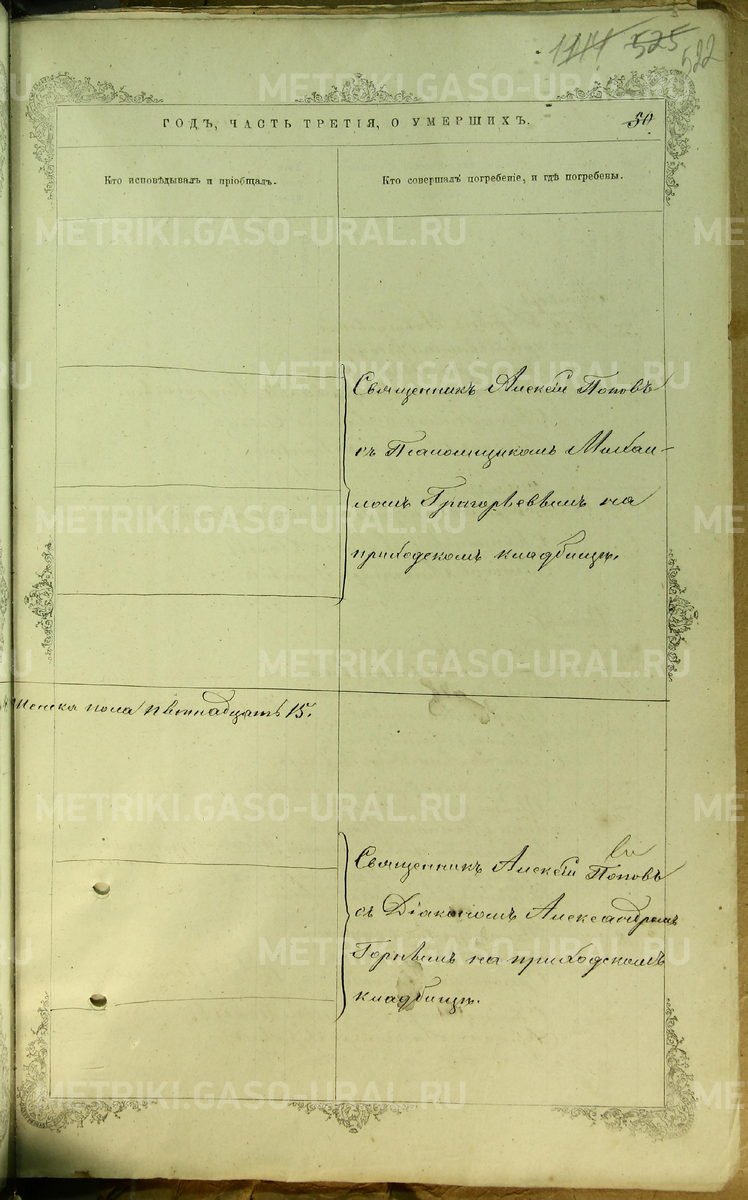 1141 525 522
ГОДЪ, ЧАСТЬ ТРЕТІЯ, О УМЕРШИХЪ. 50
Кто исповѣдывалъ и пріобщалъ.
Кто совершалъ погребеніе, и гдѣ погребены.
Священникъ Алексій Поповъ
съ Псаломщикомъ Михаи-
ломъ Григорьевымъ на
приходскомъ кладбищѣ.
женска пола пятнадцать 15.
Священникъ Алексій Поповъ
съ Діакономъ Александромъ
Горнымъ на приходскомъ
кладбищѣ.
METRIKI.GASO-URAL.RU